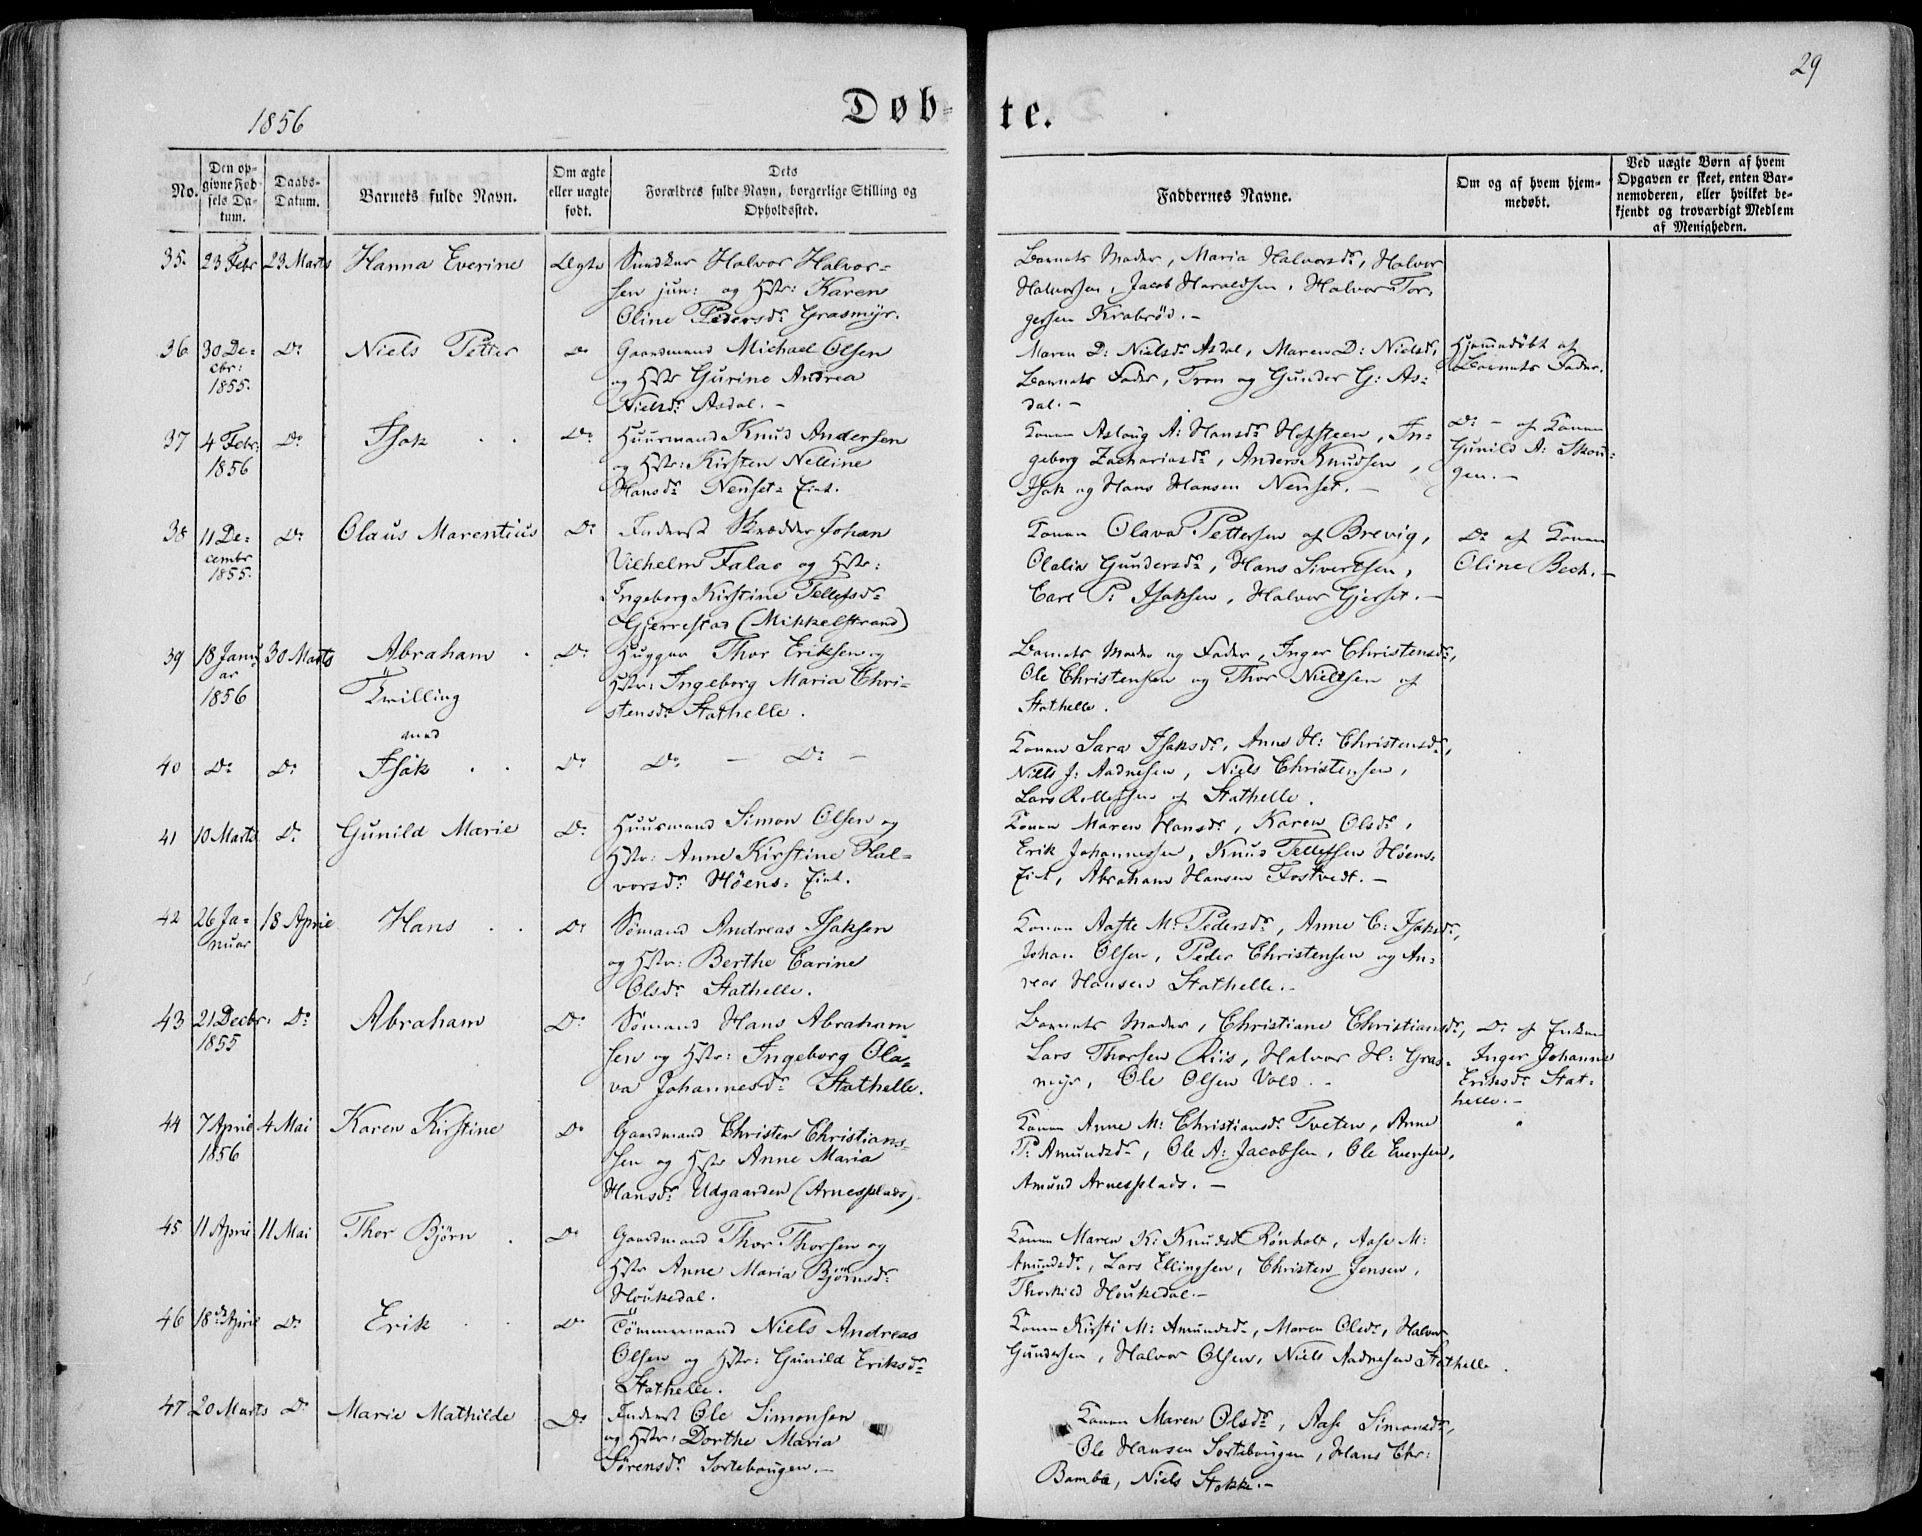 29
1856
Døb-
te.
No.
Den op-
givne Fød-
sels Da-
tum.
Daabs-
Datum.
Barnets fulde Navn.
Om ægte
eller uægte
født.
Dets
Forældres fulde Navn, borgerlige Stilling og
Opholdssted.
Faddernes Navne.
Om og af hvem hjem-
medøbt.
Ved uægte Børn af hvem
Opgaven er skeet, enten Bar-
nemoderen, eller hvilket be-
kjendt og troværdigt Medlem
af Menigheden.
35. 23 Febr 23 Marts Hanna Everine Ægte
Halvor Halvor-
sen jun: og Hstr: Karen
Oline Pedersdr Grasmyr.
Barnets Moder, Maria Halvorsdr, Halvor
Halvorsen, Jacob Haraldsen, Halvor Tor-
gersen Krabrød.-
36 30 De-
cbr:
1855.
Do Niels Petter Do
Gaardmand Michael Olsen
og Hstr Gurine Andrea
Nielsdr Asdal.-
Maren D: Nielsdr Asdal, Maren D: Nielsdr,
Barnets Fader, Tron og Gunder G: As-
dal.-
Hjemmedøbt af
Barnets Fader.
37 4 Febr:
1856
Do Isak Do
Huusmand Knud Andersen
og Hstr: Kirsten Nelline
Hansdr Nenset= Eiet.
Konen Asloug A: Hansdr Hofsteen, In-
geborg Zachariasdr, Anders Knudsen,
Isak og Hans Hansen Nenset.-
Do - af Konen
Gunild A: Skou-
gen.-
38 11 De-
cembr
1855.
Do Olaus Marentius Do
Inderst Skrædder Johan
Vilhelm Falao og Hstr:
Ingeborg Kirstine Tellefsdr
Gjerrestad (Mikkelstrand)
Konen Olava Pettersen af Brevig,
Olalia Gundersdr, Hans Sivertsen,
Carl P: Isaksen, Halvor Gjerset.-
Do af Konen
Oline Bech.-
39 18 Janu-
ar
1856
30 Marts Abraham Do
Tvilling
med
Hugger Thor Eriksen og
Hstr: Ingeborg Maria Chri-
stensdr Stathelle.
Barnets Moder og Fader, Inger Christensdr,
Ole Christensen og Thor Nielsen af
Stathelle.
40 Do Do Isak Do Do - Do -
Konen Sara Isaksdr, Anne H: Christensdr,
Niels J: Aadnesen, Niels Christensen,
Lars Rollefsen af Stathelle.
41 10 Marts Do Gunild Marie Do
Huusmand Simon Olsen og
Hstr: Anne Kirstine Hal-
vorsdr Høens= Eiet.
Konen Maren Hansdr, Karen Olsdr,
Erik Johannessen, Knud Tellefsen Høens-
Eiet, Abraham Hansen Fostvedt.-
42 26 Ja-
nuar
18 April Hans Do
Sømand Andreas Isaksen
og Hstr: Berthe Carine
Olsdr Stathelle.
Konen Aaste M: Pedersdr, Anne C: Isaksdr,
Johan Olsen, Peder Christensen og An-
reas Hansen Stathelle.-
43 21 Decbr.
1855
Do Abraham Do
Sømand Hans Abraham
sen og Hstr: Ingeborg Ola-
va Johannesdr Stathelle.
Barnets Moder, Christiane Christiansdr,
Lars Thorsen Riis, Halvor H: Gras-
myr, Ole Olsen Vold.-
Do af Enken
Inger Johanne
Eriksdr Stat-
helle.-
44 7 April
1856
4 Mai Karen Kirstine Do
Gaardmand Christen Christian-
sen og Hstr Anne Maria
Hansdr Udgaarden (Arnesplads).
Konen Anne M: Christiansdr Tveten, Anne
P: Amundsdr, Ole A: Jacobsen, Ole Evensen,
Amund Arnesplads.-
45 11 April 11 Mai Thor Bjørn Do
Gaardmand Thor Thorsen og
Hstr Anne Maria Bjørnsdr
Houkedal.
Konen Maren K: Knudsdr Rønholt, Aase M:
Amundsdr, Lars Ellingsen, Christen Jensen,
Thorkild Houkedal.-
46 18de April Do Erik Do
Tömmermand Niels Andreas
Olsen og Hstr: Gunild Eriksdr
Stathelle.
Konen Kirsti M: Amundsdr, Maren Olsdr, Halvor
Gundersen, Halvor Olsen, Niels Aadnesen Stathelle.
47 20 Marts Do Marie Mathilde Do
Inderst Ole Simonsen
og Hstr: Dorthe Maria
Sørensdr Sortebougen.-
Konen Maren Olsdr, Aase Simonsdr,
Ole Hansen Sortebougen, Hans Chr:
Bamba, Niels Stokke.-